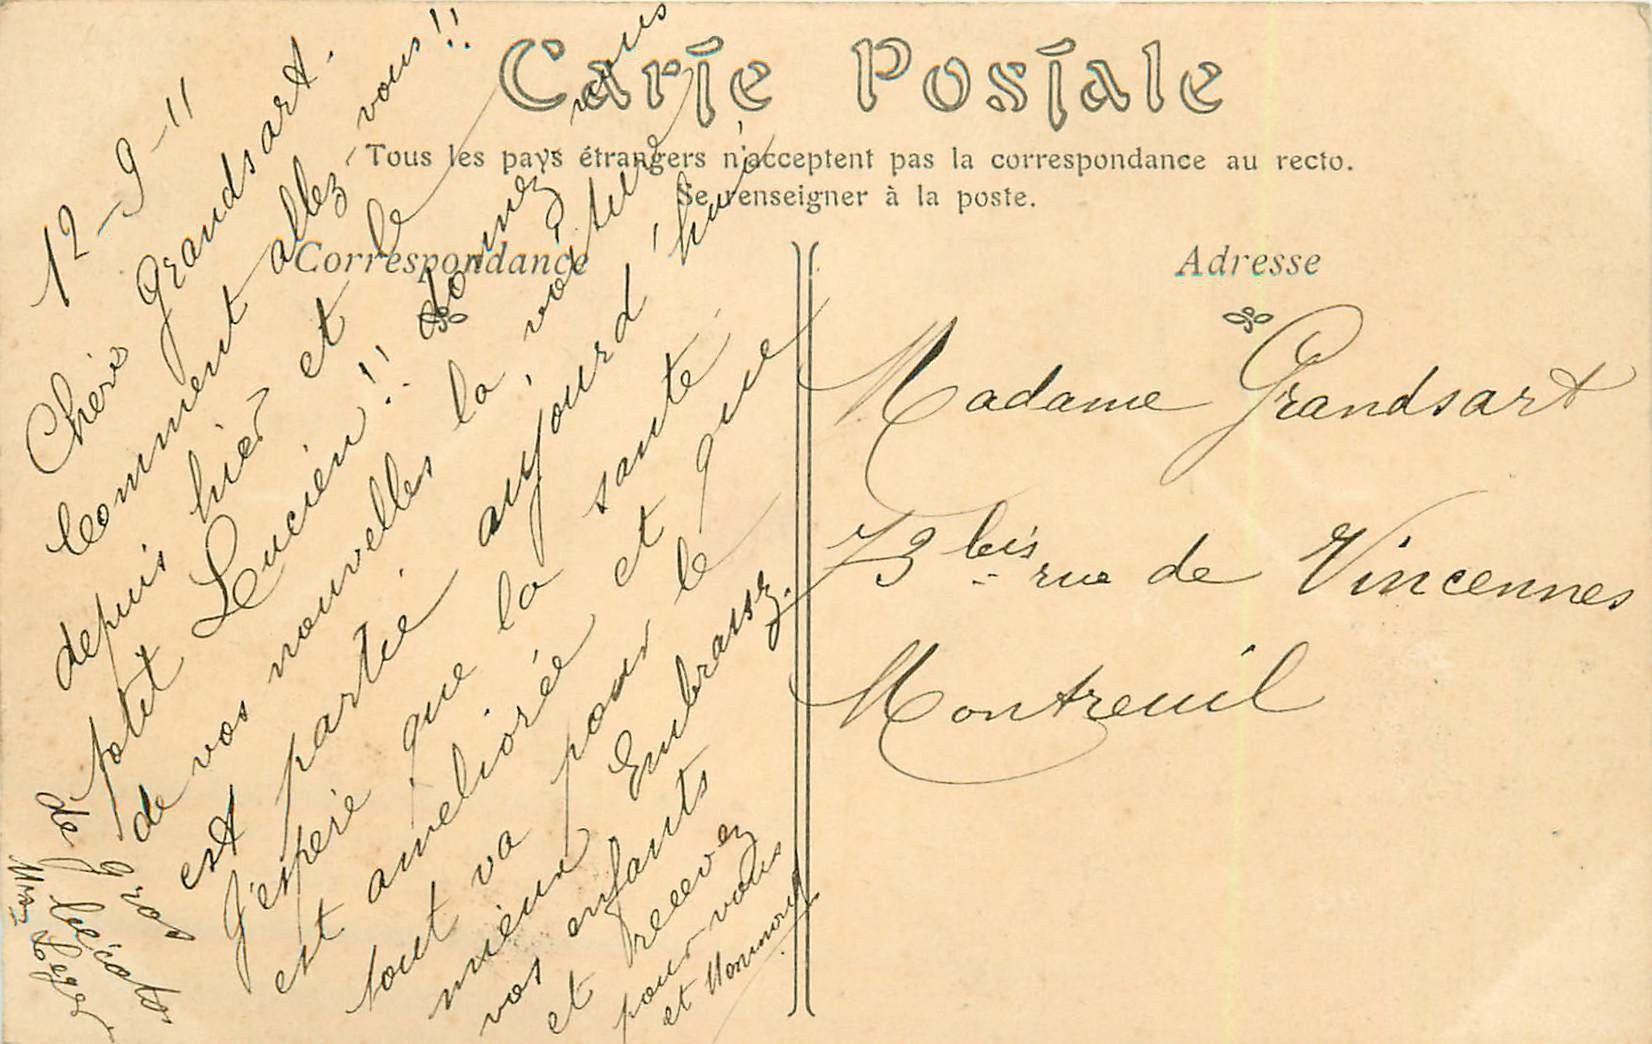 Carte Postale
Tous les pays étrangers n'acceptent pas la correspondance au recto.
Se renseigner à la poste.
Correspondance
Adresse
12-9-11
Chère Grandsart.
Comment allez-vous!!
depuis hier et le
petit Lucien!! donnez nous
de vos nouvelles la, vôtre
est partie aujourd'hui
J'espère que la santé
est ameliorée et que
tout va pour le
mieux Embrassez
vos enfants
et recevez
pour vous
et
de gros
bécots
Leger
Madame Grandsart
73 bis rue de Vincennes
Montreuil